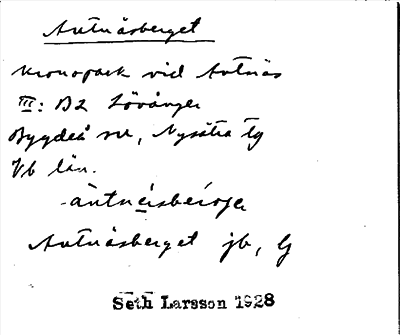 Avtnäsberget
Kronopark vid Avtnäs
III: B2 Lövånger
Bygdeå sn, Nysätra tg
Vb län.
Avtnäsberget jb, G
Seth Larsson 1928